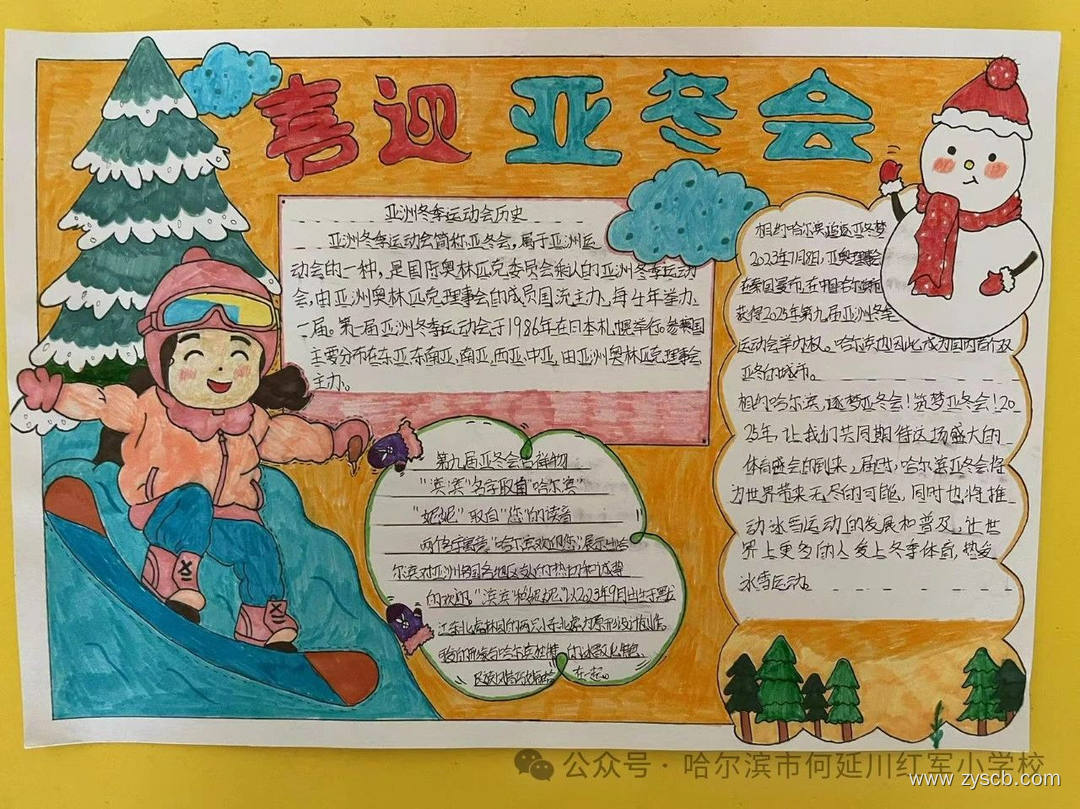 喜迎亚冬会
亚洲冬季运动会历史
亚洲冬季运动会简称亚冬会，属于亚洲运
动会的一种，是国际奥林匹克委员会承认的亚洲冬季运动
会，由亚洲奥林匹克理事会的成员国流主办，每4年举办
一届。第一届亚洲冬季运动会于1986年在日本札幌举行。参赛国
主要分布在东亚、东南亚、南亚、西亚、中亚，由亚洲奥林匹克理事会
主办。
第九届亚冬会吉祥物
“滨滨”名字取自“哈尔滨”
“妮妮”取自“您”的读音
两个名字寓意“哈尔滨欢迎您”，展示出哈
尔滨对亚洲各国各地区
的欢迎。“滨滨”和“妮妮”以2023年9月出生于黑龙
江东北虎林园的两只小东北虎为原形设计创作。
相约哈尔滨追逐亚冬梦
2023年7月8日，亚奥理事会
在泰国曼谷，在中国哈尔滨
获得2025年第九届亚洲冬季
运动会举办权。哈尔滨也因此，成为国内首个双
亚冬的城市。
相约哈尔滨，逐梦亚冬会！筑梦亚冬会！20
25年，让我们共同期待这场盛大的
体育盛会的到来，届时，哈尔滨亚冬会将
为世界带来无尽的可能，同时也将推
动冰雪运动的发展和普及，让世
界上更多的人爱上冬季体育，热爱
冰雪运动。
公众号·哈尔滨市何延川红军小学校
www.zyscb.com